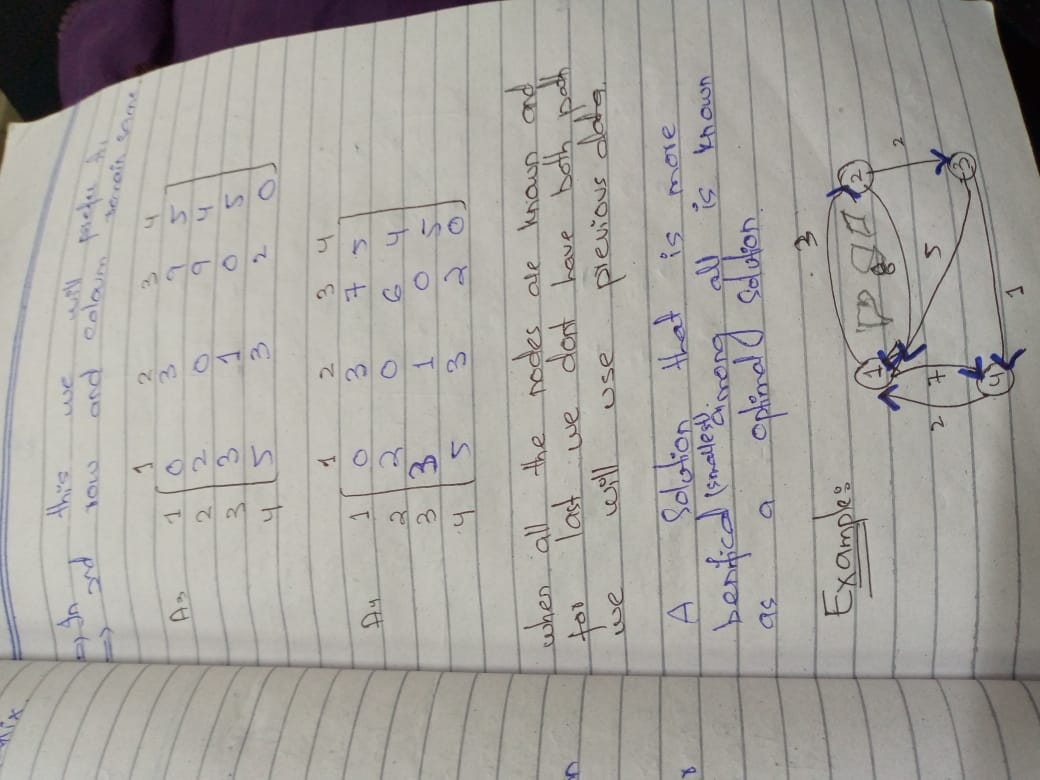 => In this we will prefer
=> 3rd row and column remain same
1 2 3 4
A3 1 0 3 9 5
2 2 0 9 4
3 3 1 0 5
4 5 3 2 0
1 2 3 4
A4 1 0 3 7 5
2 2 0 6 4
3 3 1 0 5
4 5 3 2 0
when all the nodes are known and
for last we dont have both path
we will use previous data.
A Solution that is more
benifical (smallest) among all is known
as a optimal solution.
Example:
3
1 2
8
2
3
5
7
2
4
1